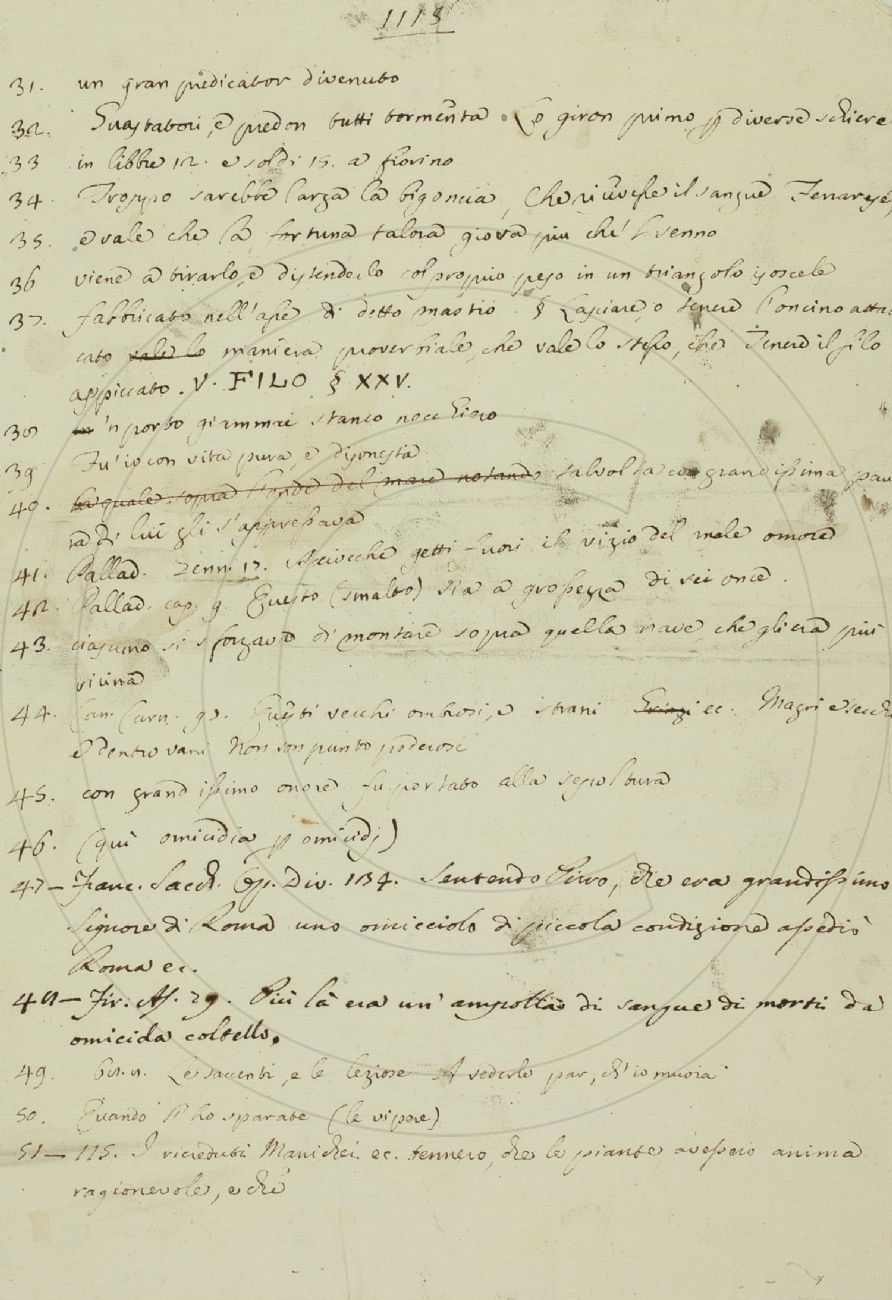 1113
31. un gran predicator divenuto
32. Guastatori, e predon tutti tormenta. Lo giron primo p diverse schiere
33 in libbre 12. e soldi 15. a fiorino
34. Troppo sarebbe larga la bigoncia, Che ricevesse il sangue Ferrarese,
35. e vale che la fortuna talora giova più che 'l senno
36 viene a tirarlo, e distenderlo col proprio peso in un triangolo isoscele
37. fabbricato nell'asse di detto mastio. § Lasciare, o tenere l'oncino attac
cato vale lo maniera proverbiale, che vale lo stesso, che Tenere il filo
appiccato. V. FILO § XXV.
38 in 'n porto giammai stanco nocchiero
39 Fu' io con vita pura, e disonesta
40. la quale sopra l'onde del mare notando talvolta con grandissima pau
ra di lui gli s'appressava
41. Pallad. Genn. 17. Acciocchè getti fuori il vizio del male omore
42. Pallad. cap. 9. Questo (smalto) sia a grossezza di sei once.
43. ciascuno si sforzava di montare sopra quella nave che gli era più
vicina
44. Can. Carn. 97. Questi vecchi ombrosi, e strani ec. Magri e secchi
e dentro vani Non son punto poderosi
45. con grandissimo onore fu portato alla sepoltura
46. (qui omicidia p omicidj)
47 - Franc. Sacch. Op. Div. 134. Sentendo Pirro, che era grandissimo
Signore di Roma uno omicciolo di piccola condizione assediò
Roma ec.
48 - Fir. As. 29. Più là era un' ampolla di sangue di morti da
omicida coltello.
49. Le saccenti, e le leziose A vederle par, ch'io muoia
50. Quando l'ho sparate (le vipere)
51 - 115. I ricreduti Manichei ec. tennero, che le piante avessero anima
ragionevole, e che